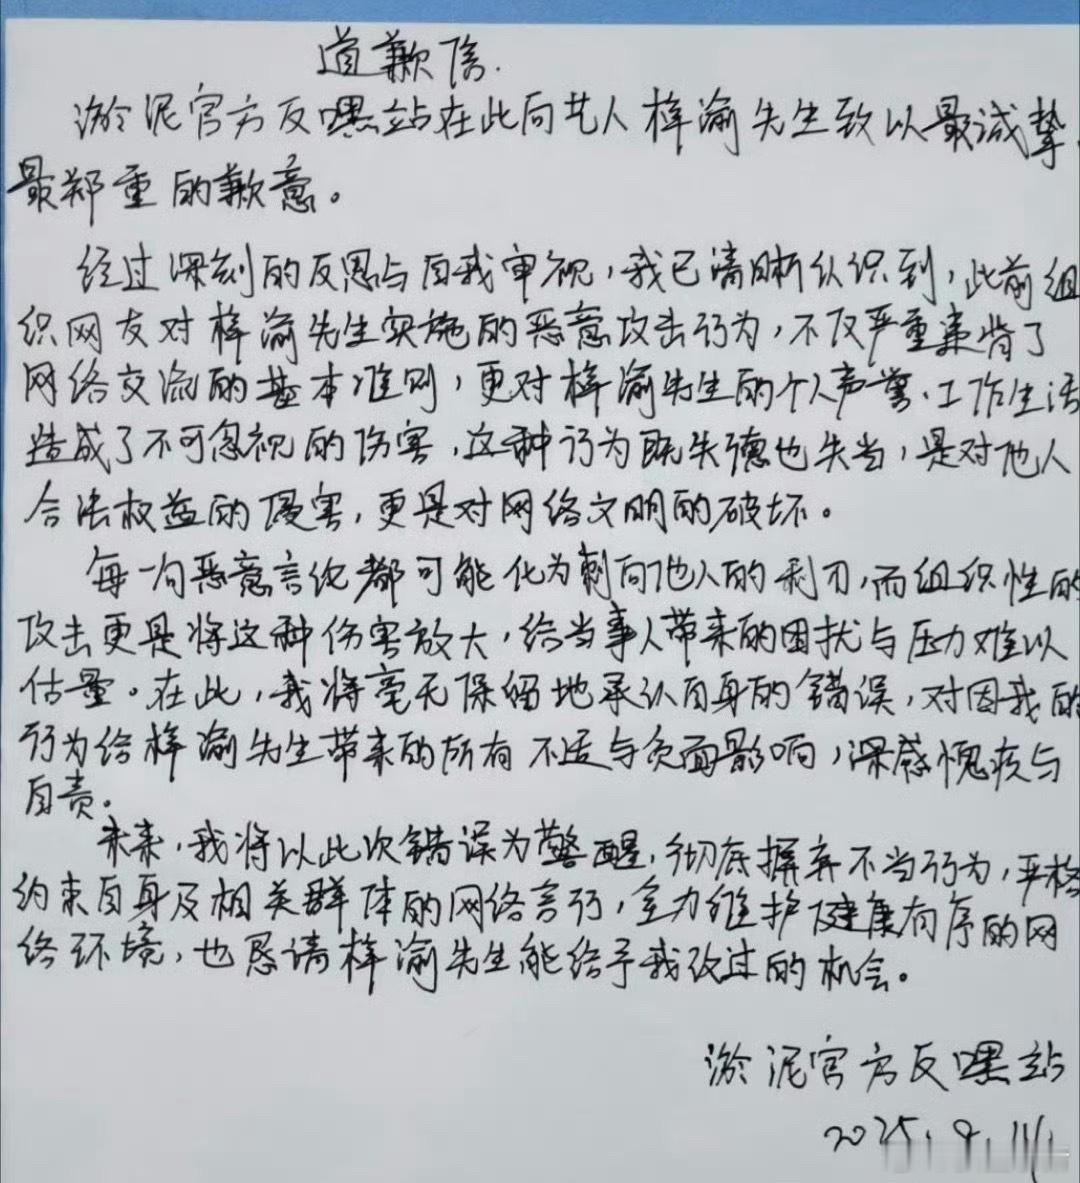 道歉信.
淤泥官方反嘿站在此向艺人梓渝先生致以最诚挚、
最郑重的歉意。
经过深刻的反思与自我审视，我已清晰认识到，此前组
织网友对梓渝先生实施的恶意攻击行为，不仅严重违背了
网络交流的基本准则，更对梓渝先生的个人声誉、工作生活
造成了不可忽视的伤害，这种行为既失德也失当，是对他人
合法权益的侵害，更是对网络文明的破坏。
每一句恶意言论都可能化为刺向他人的利刃，而组织性的
攻击更是将这种伤害放大，给当事人带来的困扰与压力难以
估量。在此，我将毫无保留地承认自身的错误，对因我的
行为给梓渝先生带来的所有不适与负面影响，深感愧疚与
自责。
未来，我将以此次错误为警醒，彻底摒弃不当行为，严格
约束自身及相关群体的网络言行，全力维护健康有序的网
络环境，也恳请梓渝先生能给予我改过的机会。
淤泥官方反嘿站
2025.9.11